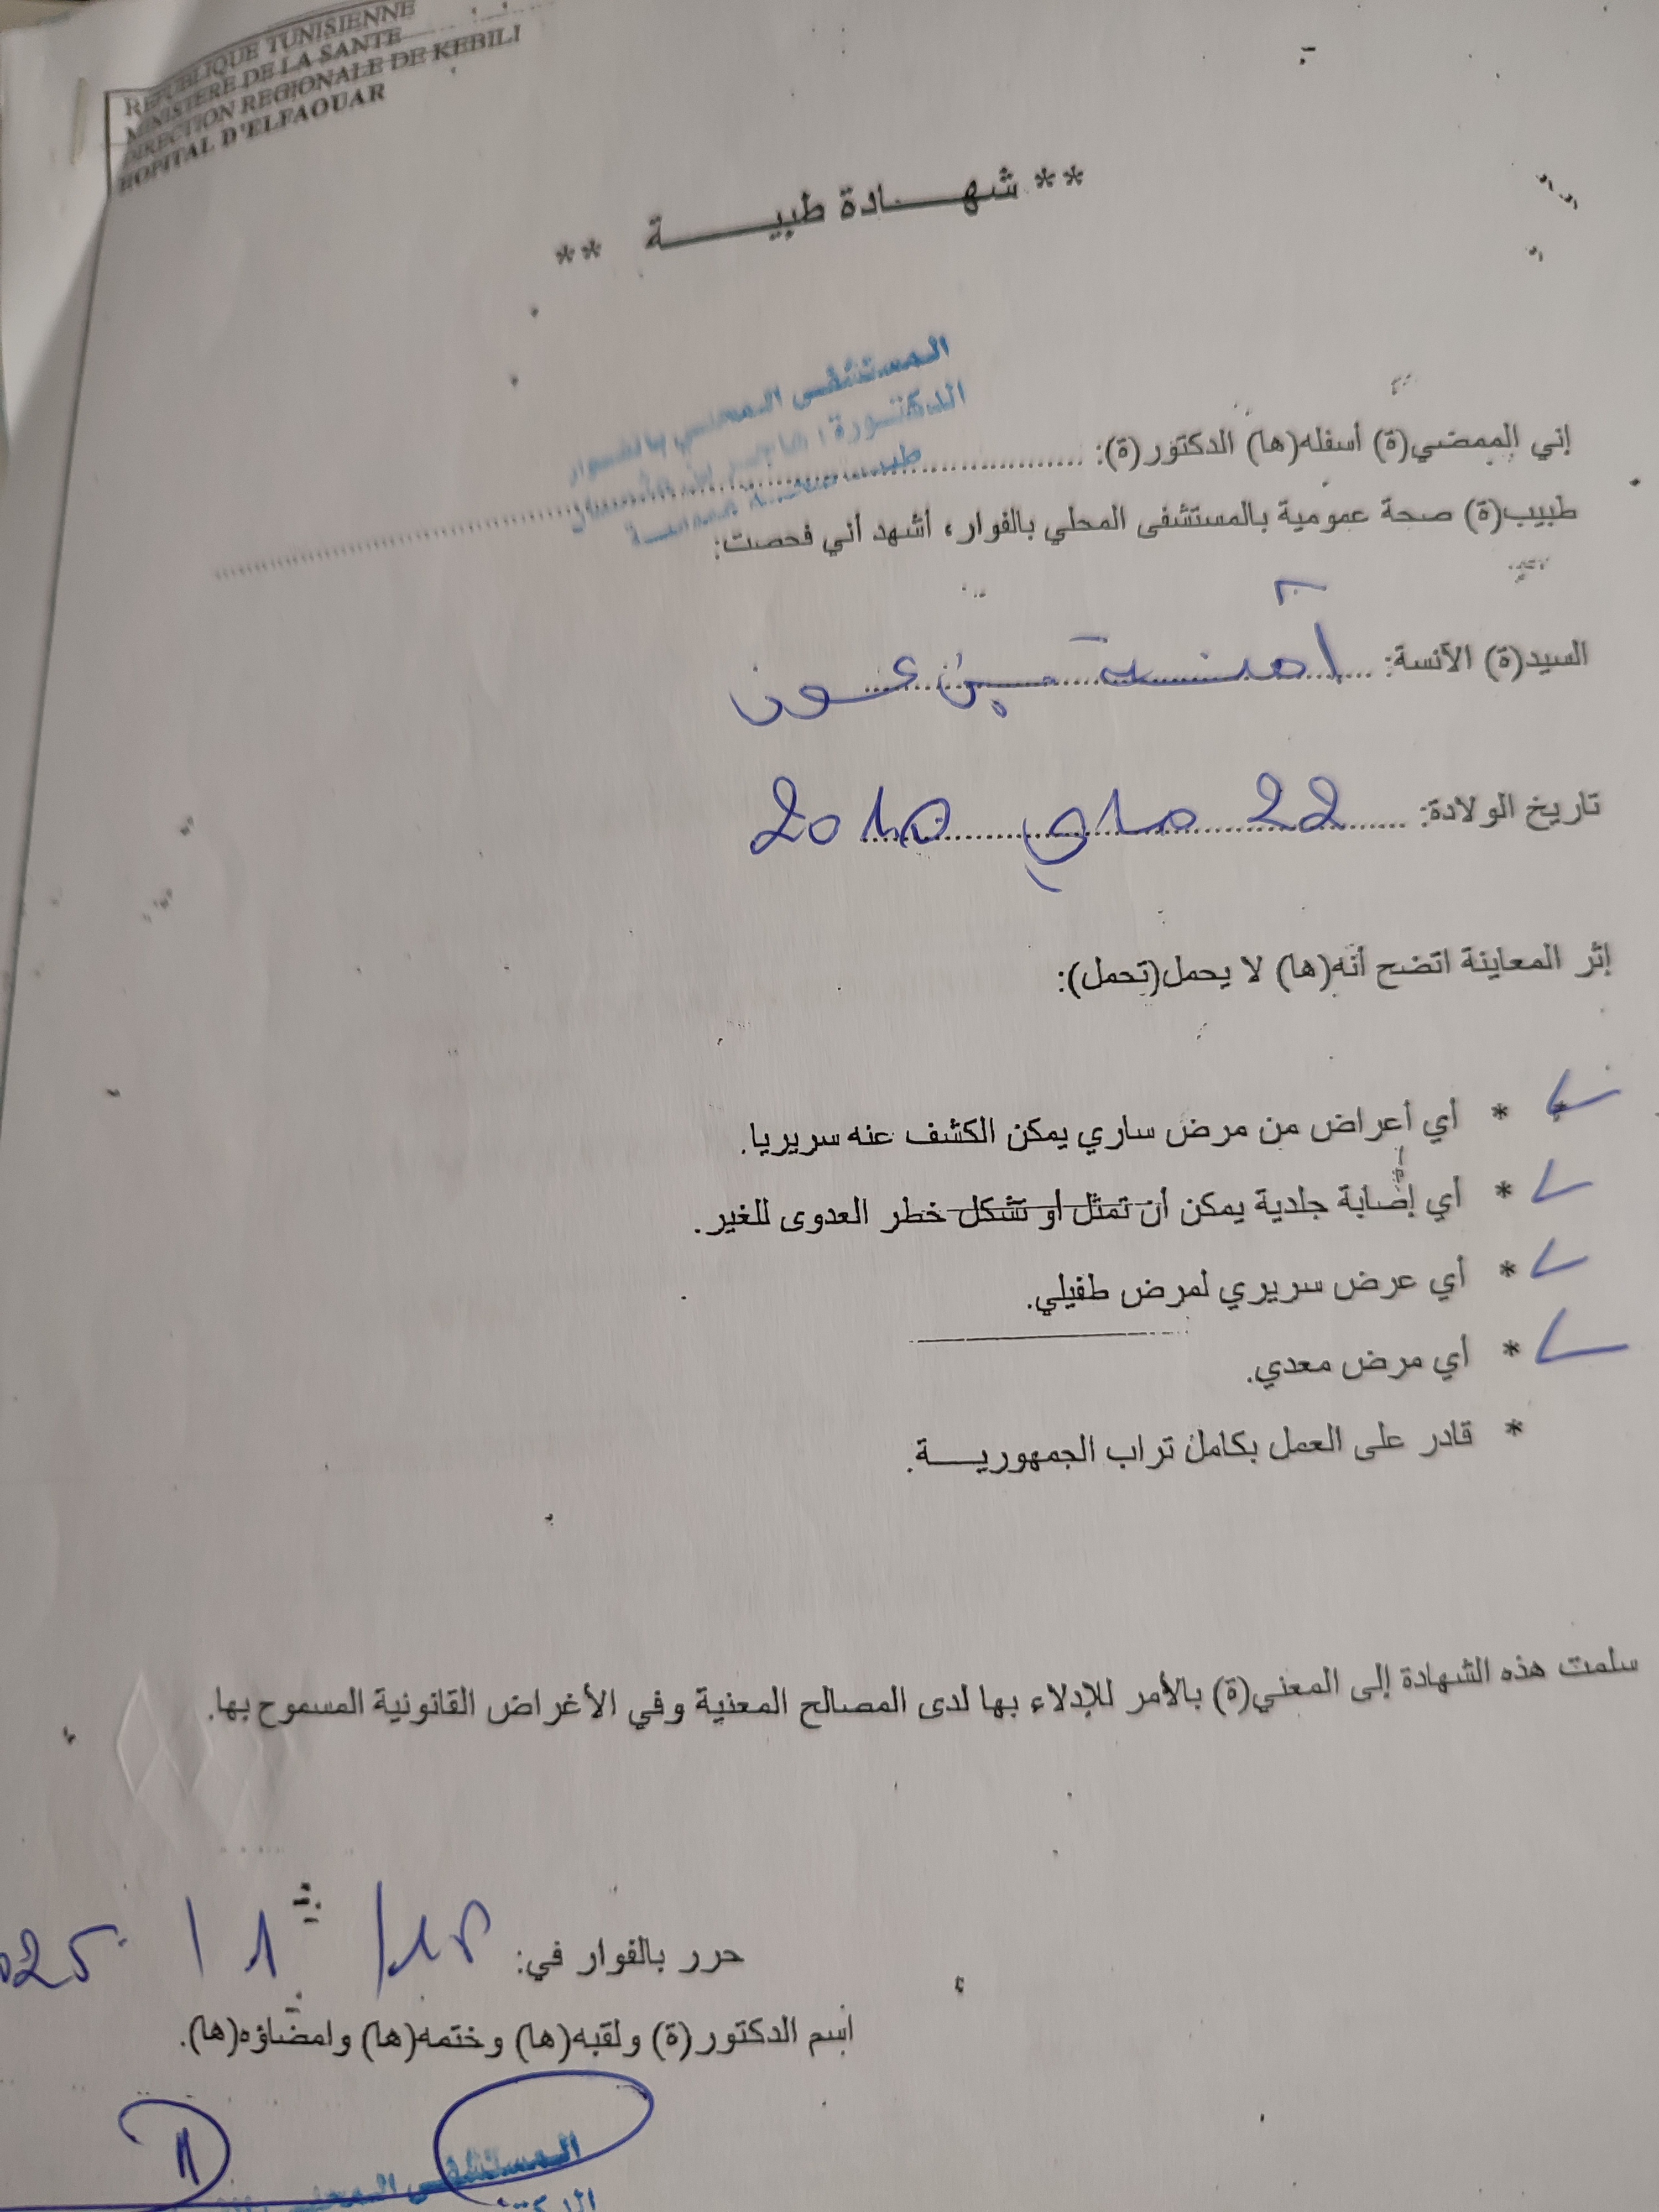 REPUBLIQUE TUNISIENNE
MINISTERE DE LA SANTE
DIRECTION REGIONALE DE KEBILI
HOPITAL D'ELFAOUAR
** شهـــادة طبيـــــة **
المستشفى المحلي بالفوار
الدكتورة :
إني الممضي(ة) أسفله(ها) الدكتور(ة):
طبيب(ة) صحة عمومية بالمستشفى المحلي بالفوار، أشهد أني فحصت:
السيد(ة) الآنسة: آمنة بن عون
تاريخ الولادة: 22 ماي
إثر المعاينة اتضح أنه(ها) لا يحمل(تحمل):
* أي أعراض من مرض ساري يمكن الكشف عنه سريريا.
* أي إصابة جلدية يمكن أن تمثل أو تشكل خطر العدوى للغير.
* أي عرض سريري لمرض طفيلي.
* أي مرض معدي.
* قادر على العمل بكامل تراب الجمهوريـــة.
سلمت هذه الشهادة إلى المعني(ة) بالأمر للإدلاء بها لدى المصالح المعنية وفي الأغراض القانونية المسموح بها.
حرر بالفوار في:
اسم الدكتور(ة) ولقبه(ها) وختمه(ها) وامضاؤه(ها).
المستشفى المحلي